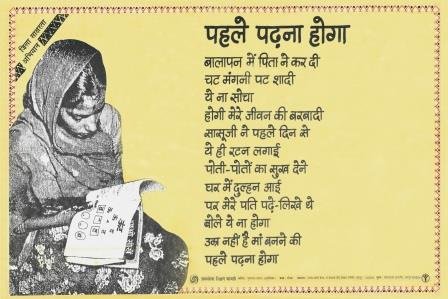 जिला साक्षरता
अभियान
पहले पढ़ना होगा
बालापन में पिता ने कर दी
चट मंगनी पट शादी
ये ना सोचा
होगी मेरे जीवन की बरबादी
सासूजी ने पहले दिन से
ये ही रटन लगाई
पोती-पोतों का सुख देने
घर में दुल्हन आई
पर मेरे पति पढ़े-लिखे थे
बोले ये ना होगा
उम्र नहीं है मां बनने की
पहले पढ़ना होगा